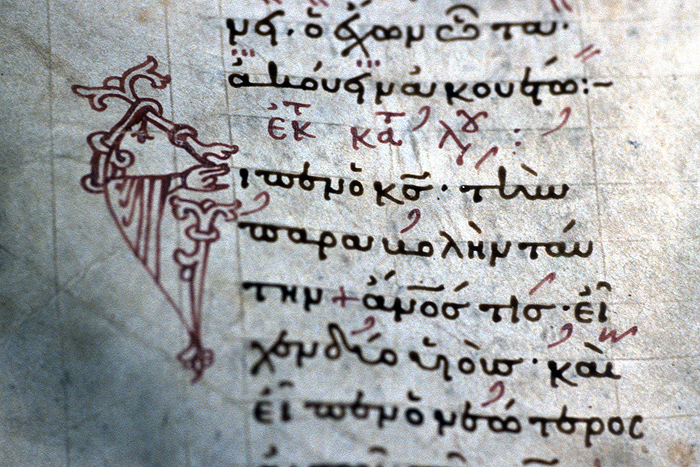 ὁ ἔχων ὦτα·
ἀκούειν ἀκουέτω:~
ἐκ τ κατ λου :
Εἶπεν ὁ κ̅ς̅· τὴν
παραβολὴν ταύ
την + ἄ̅ν̅ο̅ς̅ τισ· εἶ
χεν δύο υἱούσ· καὶ
εἶπεν ὁ νεώτερος